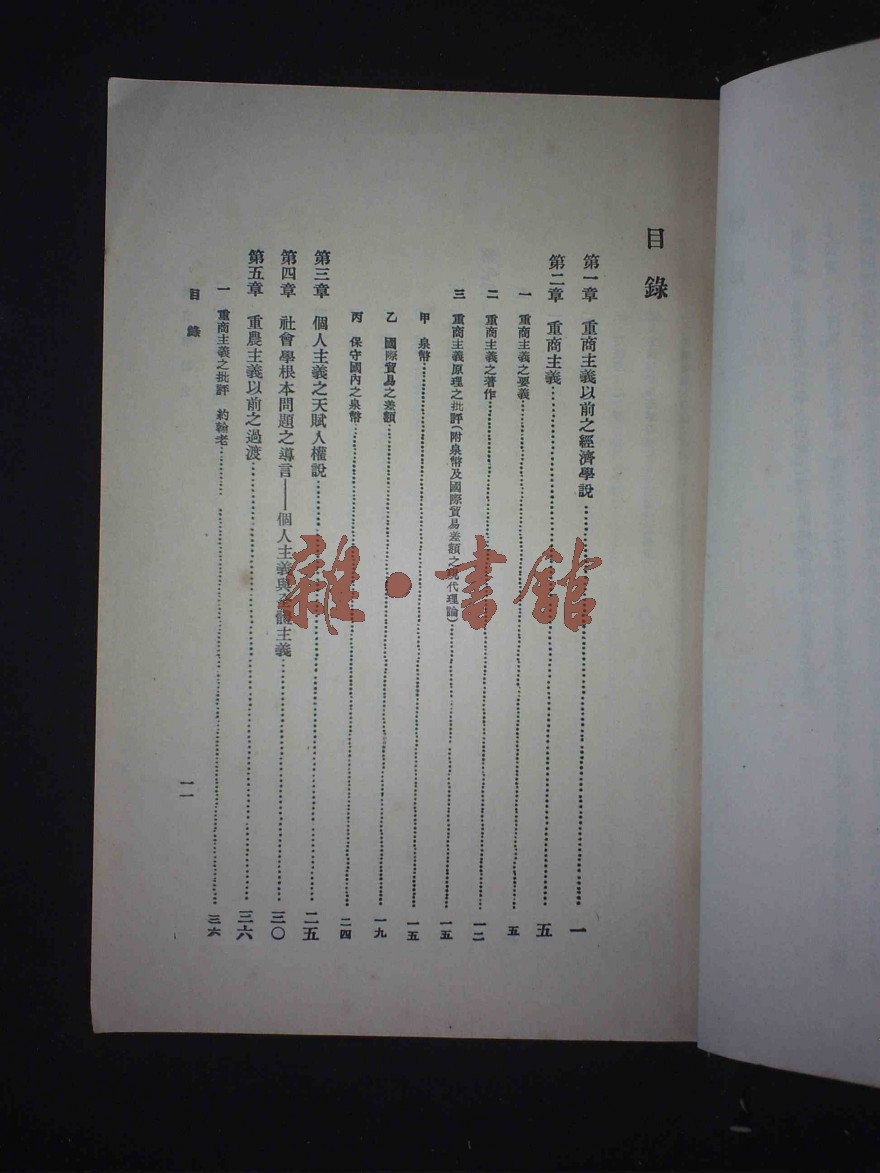 目錄
第一章 重商主義以前之經濟學說……一
第二章 重商主義……五
一 重商主義之要義……五
二 重商主義之著作……一二
三 重商主義原理之批評(附泉幣及國際貿易差額之現代理論)……一五
甲 泉幣……一五
乙 國際貿易之差額……一九
丙 保守國內之泉幣……二四
第三章 個人主義之天賦人權說……二五
第四章 社會學根本問題之導言——個人主義與全體主義……三〇
第五章 重農主義以前之過渡……三六
一 重商主義之批評 約翰老……三六
目錄
一一
雜·書館